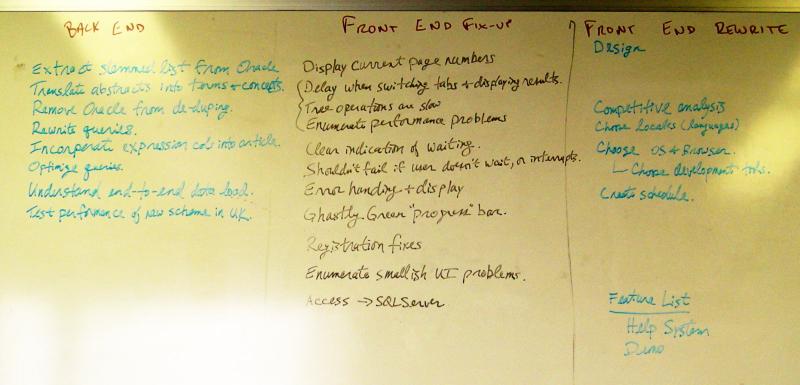 BACK END
Extract stemmed list from Oracle
Translate abstracts into terms + concepts.
Remove Oracle from de-duping.
Rewrite queries.
Incorporate expression cols into article.
Optimize queries.
Understand end-to-end data load.
Test performance of new scheme in UK.
FRONT END FIX-UP
Display current page numbers
Delay when switching tabs + displaying results.
Tree operations are slow
Enumerate performance problems
Clear indication of waiting.
Shouldn't fail if user doesn't wait, or interrupts.
Error handing + display
Ghastly Green "progress" bar.
Registration fixes
Enumerate smallish UI problems.
Access → SQLServer
FRONT END REWRITE
Design
Competitive analysis
Choose Locales (languages)
Choose OS + Browser.
Choose development tools.
Create schedule.
Feature List
Help System
Demo